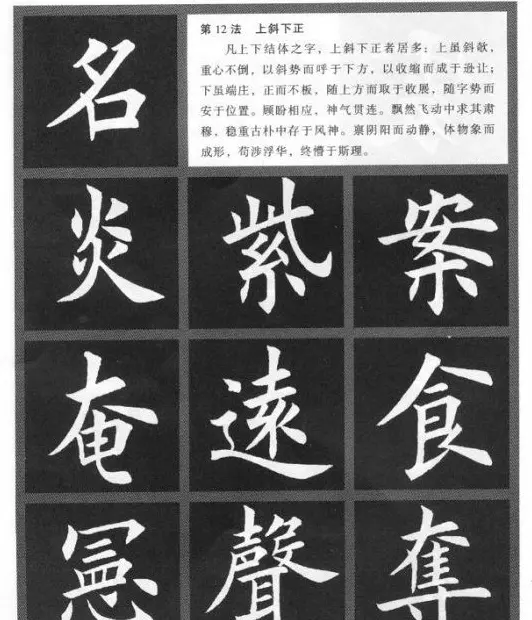 名
第12法 上斜下正
凡上下结体之字，上斜下正者居多；上虽斜欹，
重心不倒，以斜势而呼于下方，以收缩而成于逊让；
下虽端庄，正而不板，随上方而取于收展，随字势而
安于位置。顾盼相应，神气贯连。飘然飞动中求其肃
穆，稳重古朴中存于风神。禀阴阳而动静，体物象而
成形，苟涉浮华，终懵于斯理。
炎 紫 案
奄 遠 食
聲 奪